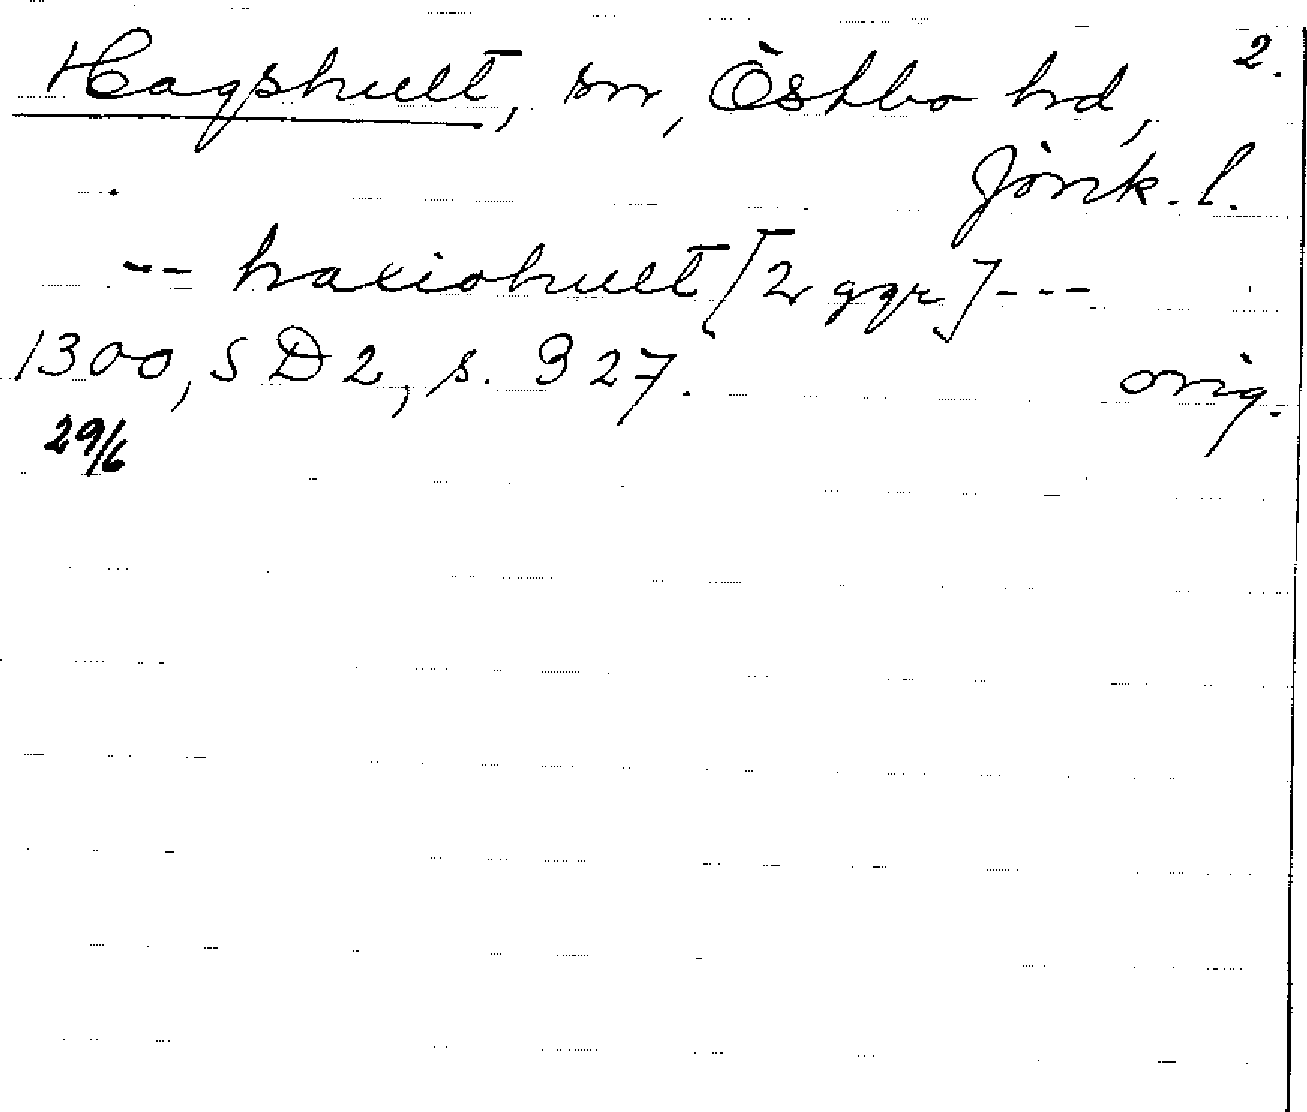 2.
Hagshult, sn, Östbo hd,
Jönk. l.
-- haxiohult [2 ggr] ---
1300, SD 2, s. 327. orig.
29/6